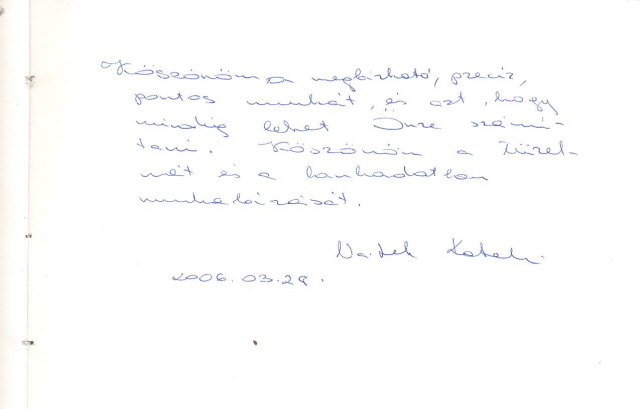 Köszönöm a megbízható, precíz,
pontos munkát, és azt, hogy
mindig lehet Önre számí-
tani. Köszönöm a türel-
mét és a lankadatlan
munkabírását.
2006.03.28.